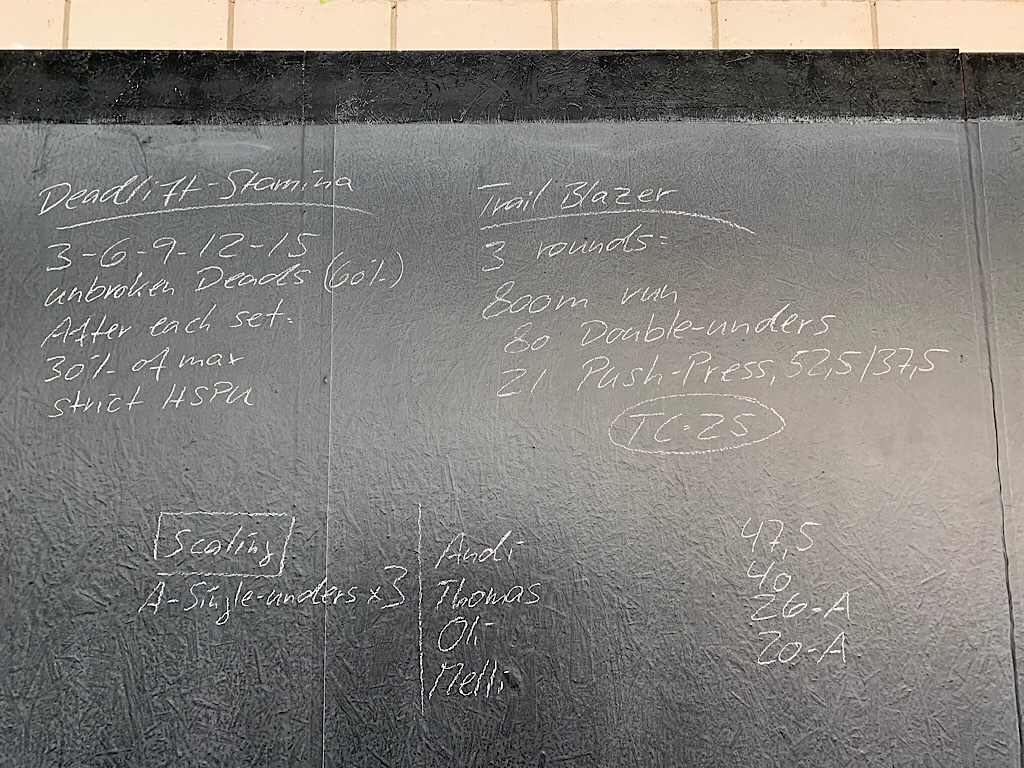 Deadlift-Stamina
3-6-9-12-15
unbroken Deads (60%)
After each set:
30% of max
strict HSPU
Trail Blazer
3 rounds:
800m run
80 Double-unders
21 Push-Press, 52,5/37,5
TC=25
Scaling
A-Single-unders x3
Andi 47,5
Thomas 40
Oli 26-A
Melli 20-A